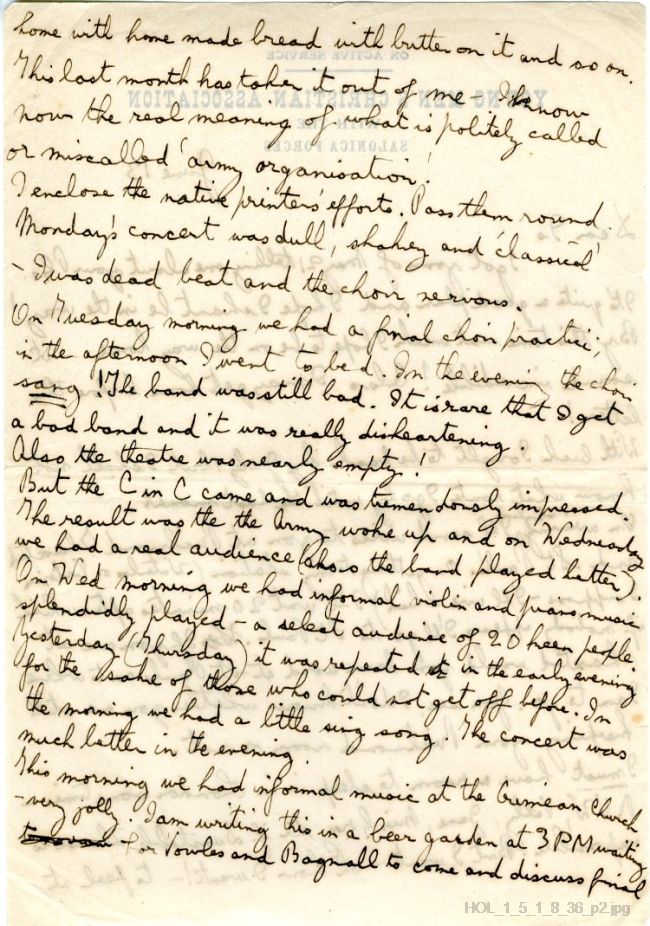 home with home made bread with butter on it and so on.
This last month has taken it out of me – I know
now the real meaning of what is politely called
or miscalled 'army organisation'.
I enclose the native printers' efforts. Pass them round.
Monday's concert was dull, shakey and 'classical'
– I was dead beat and the choir nervous.
On Tuesday morning we had a final choir practice;
in the afternoon I went to bed. In the evening the choir
sang! The band was still bad. It is rare that I get
a bad band and it was really disheartening.
Also the theatre was nearly empty!
But the C in C came and was tremendously impressed.
The result was the the Army woke up and on Wednesday
we had a real audience (also the band played better).
On Wed morning we had informal violin and piano music
splendidly played – a select audience of 20 keen people.
Yesterday (Thursday) it was repeated in the early evening
for the sake of those who could not get off before. In
the morning we had a little sing song. The concert was
much better in the evening.
This morning we had informal music at the Crimean Church
– very jolly. I am writing this in a beer garden at 3PM waiting
for Vowles and Bagnall to come and discuss final
ON ACTIVE SERVICE
YOUNG MEN'S CHRISTIAN ASSOCIATION
WITH THE
SALONICA FORCES
HOL_1_5_1_8_36_p2.jpg